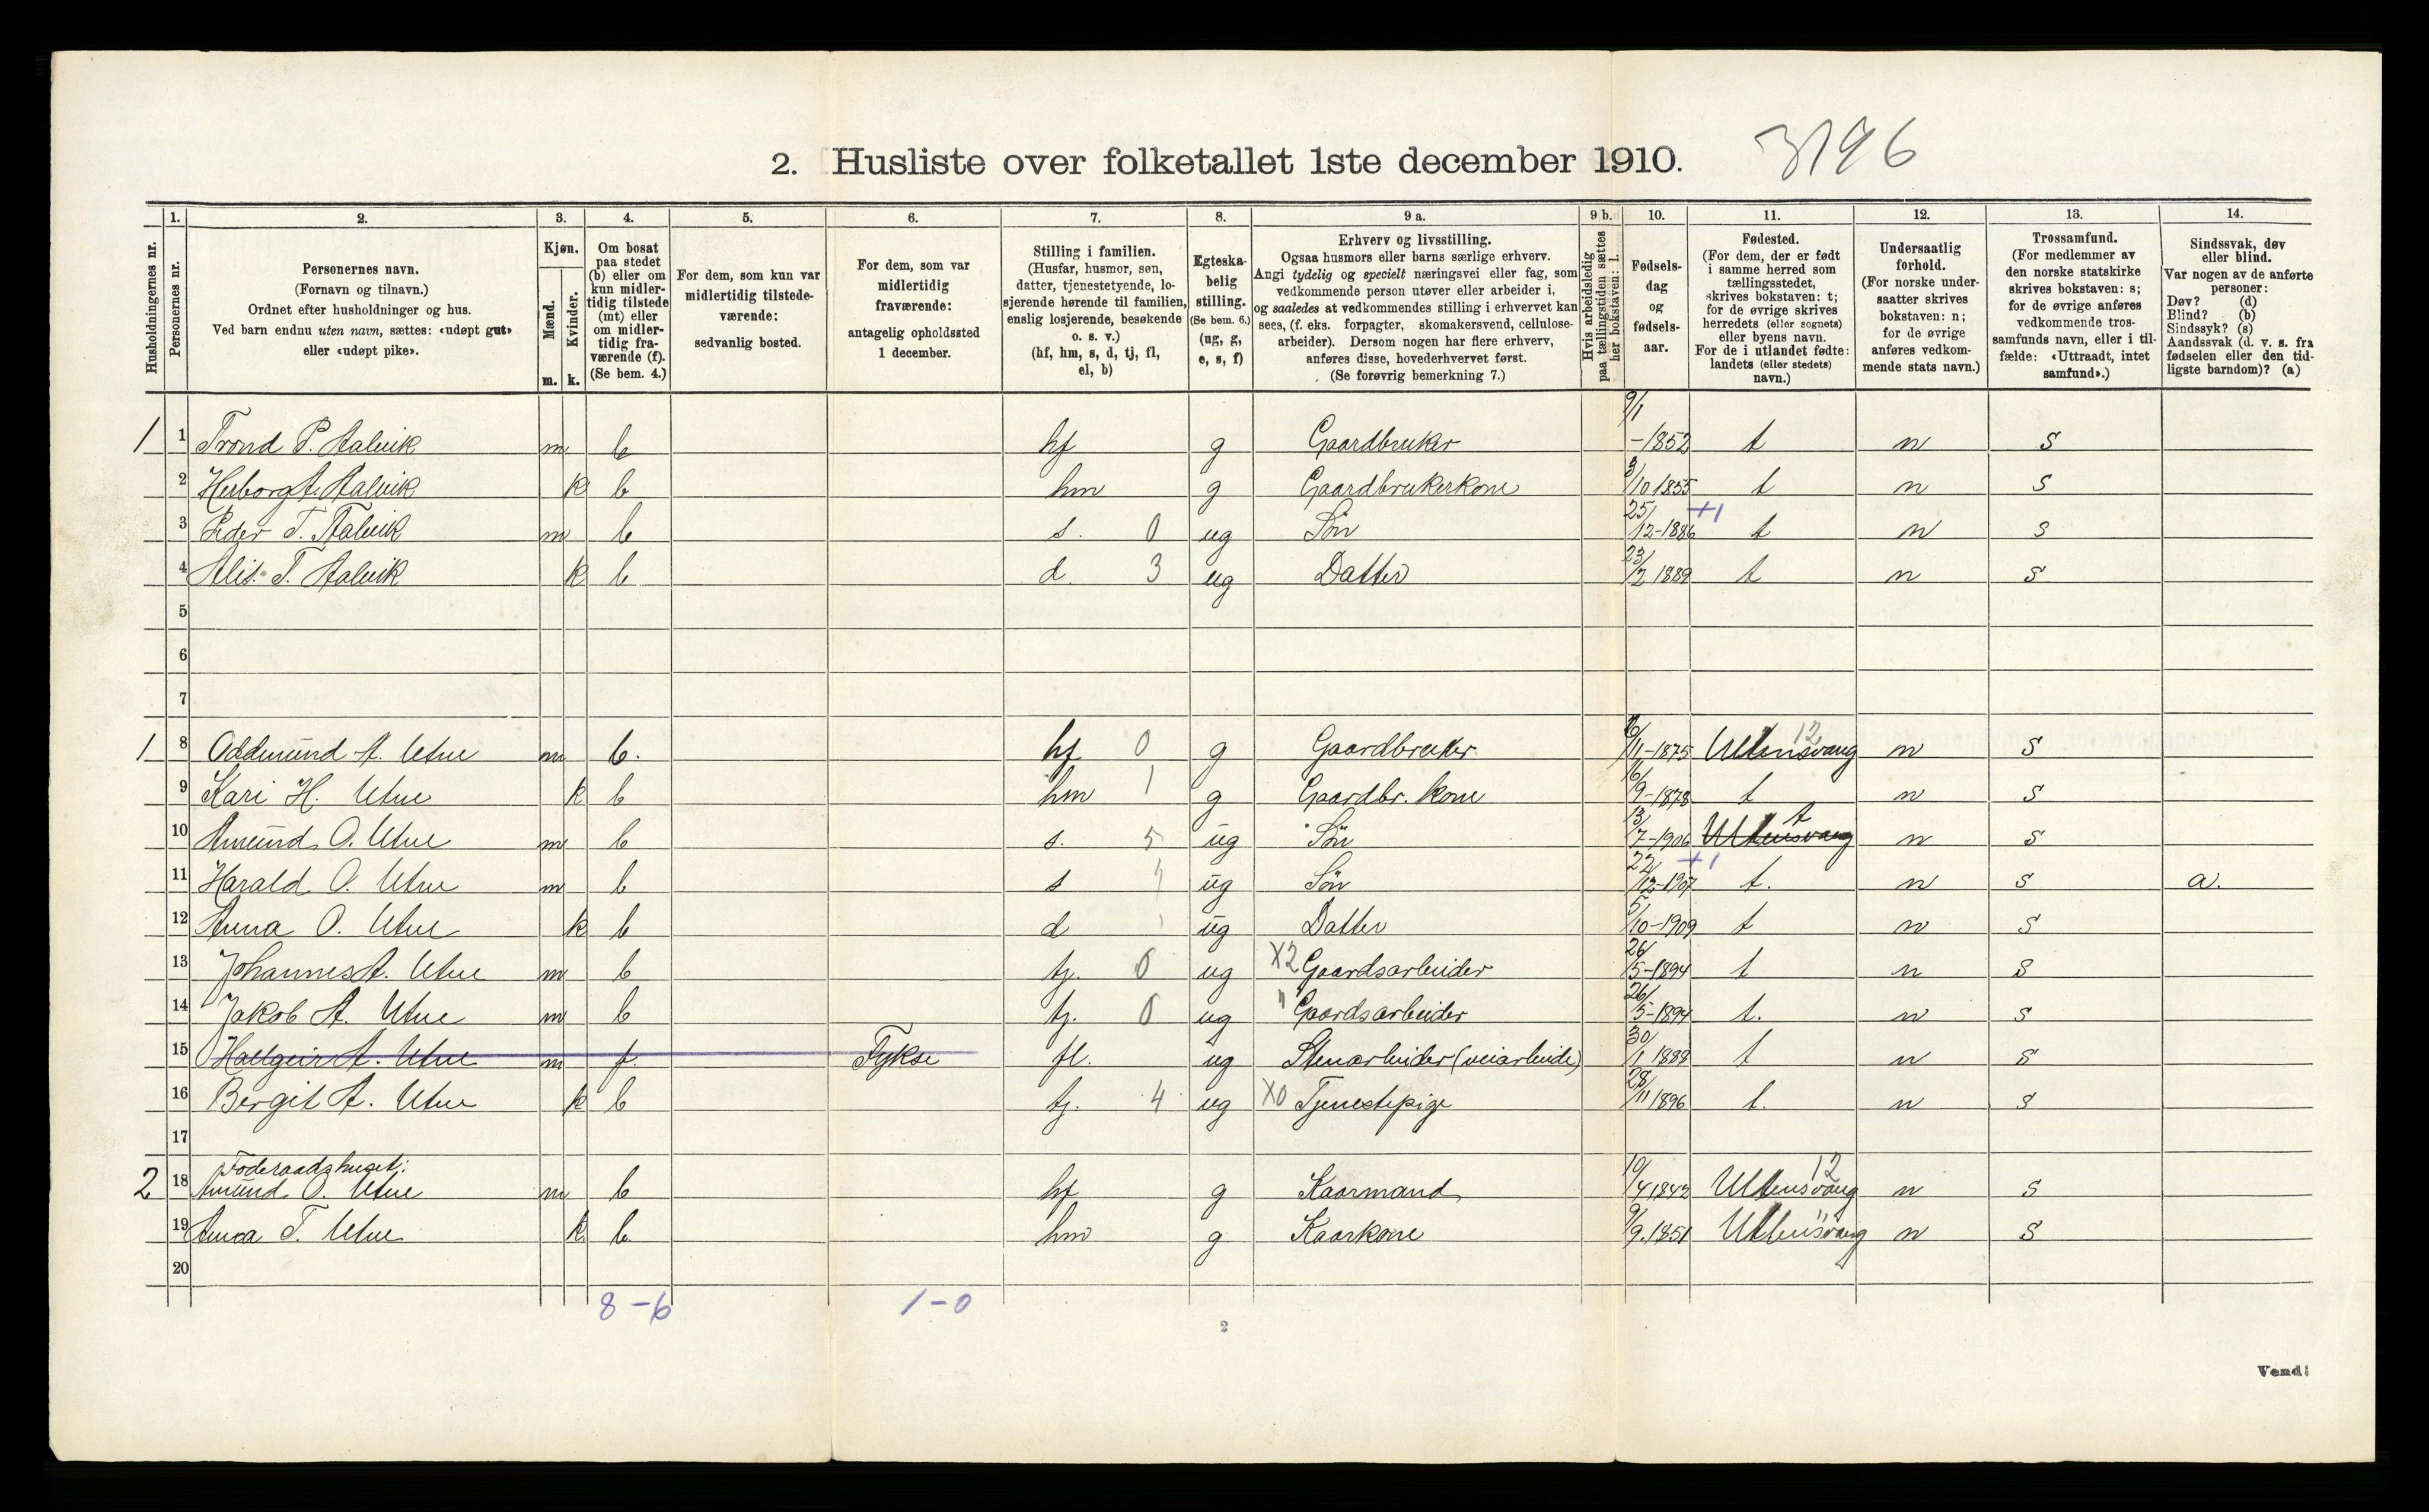 2. Husliste over folketallet 1ste december 1910. 3196
1. 2. 3. 4. 5. 6. 7. 8. 9 a. 9 b. 10. 11. 12. 13. 14.
Husholdningernes nr.
Personernes nr.
Personernes navn.
(Fornavn og tilnavn.)
Ordnet efter husholdninger og hus.
Ved barn endnu uten navn, sættes: «udøpt gut»
eller «udøpt pike».
Kjøn.
Mænd.
Kvinder.
m. k.
Om bosat
paa stedet
(b) eller om
kun midler-
tidig tilstede
(mt) eller
om midler-
tidig fra-
værende (f).
(Se bem. 4.)
For dem, som kun var
midlertidig tilstede-
værende:
sedvanlig bosted.
For dem, som var
midlertidig
fraværende:
antagelig opholdssted
1 december.
Stilling i familien.
(Husfar, husmor, søn,
datter, tjenestetyende, lo-
sjerende hørende til familien,
enslig losjerende, besøkende
o. s. v.)
(hf, hm, s, d, tj, fl,
el, b)
Egteska-
belig
stilling.
(Se bem. 6.)
(ug, g,
e, s, f)
Erhverv og livsstilling.
Ogsaa husmors eller barns særlige erhverv.
Angi tydelig og specielt næringsvei eller fag, som
vedkommende person utøver eller arbeider i,
og saaledes at vedkommendes stilling i erhvervet kan
sees, (f. eks. forpagter, skomakersvend, cellulose-
arbeider). Dersom nogen har flere erhverv,
anføres disse, hovederhvervet først.
(Se forøvrig bemerkning 7.)
Hvis arbeidsledig
paa tællingstiden sættes
her bokstaven: l.
Fødsels-
dag
og
fødsels-
aar.
Fødested.
(For dem, der er født
i samme herred som
tællingsstedet,
skrives bokstaven: t;
for de øvrige skrives
herredets (eller sognets)
eller byens navn.
For de i utlandet fødte:
landets (eller stedets)
navn.)
Undersaatlig
forhold.
(For norske under-
saatter skrives
bokstaven: n;
for de øvrige
anføres vedkom-
mende stats navn.)
Trossamfund.
(For medlemmer av
den norske statskirke
skrives bokstaven: s;
for de øvrige anføres
vedkommende tros-
samfunds navn, eller i til-
fælde: «Uttraadt, intet
samfund».)
Sindssvak, døv
eller blind.
Var nogen av de anførte
personer:
Døv? (d)
Blind? (b)
Sindssyk? (s)
Aandssvak (d. v. s. fra
fødselen eller den tid-
ligste barndom)? (a)
1 1 Trond P. Aalvik m b hf g Gaardbruker 9/1 -1852 t n s
2 Herborg A. Aalvik k b hm g Gaardbrukerkone 3/10 1855 t n s
3 Peder T. Aalvik m b s. 0 ug Søn 25/12-1886 +1 t n s
4 Alis T. Aalvik k b d. 3 ug Datter 23/2 1889 t n s
5
6
7
1 8 Oddmund A. Utne m b. hf 0 g Gaardbruker /11-1875 Ullensvang 12 n s
9 Kari H. Utne k b hm 1 g Gaardbr. kone 16/9-1878 t n s
10 Amund O. Utne m b s. 5 ug Søn 13/7-1906 Ullensvang t n s
11 Harald O. Utne m b s ug Søn 22/12-1907 +1 t. n s a.
12 Anna O. Utne k b d ug Datter 5/10-1909 t n s
13 Johannes A. Utne m b tj. 0 ug X2 Gaardsarbeider 26/5-1894 t n s
14 Jakob A. Utne m b tj. 0 ug " Gaardsarbeider 26/5-1894 t. n s
15 Hallgeir A. Utne m f. Fykse fl. ug Stenarbeider (veiarbeide) 30/1 1888 t n s
16 Bergit A. Utne k b tj. 4 ug X0 Tjenestepige 28/11 1896 t. n s
17
Føderaadshuset:
2 18 Amund O. Utne m b hf g Kaarmand 10/4 1842 Ullensvang 12 n s
19 Anna T. Utne k b. hm g Kaarkone 9/9.1851 Ullensvang " n s
20
8-6 1-0
2
Vend!